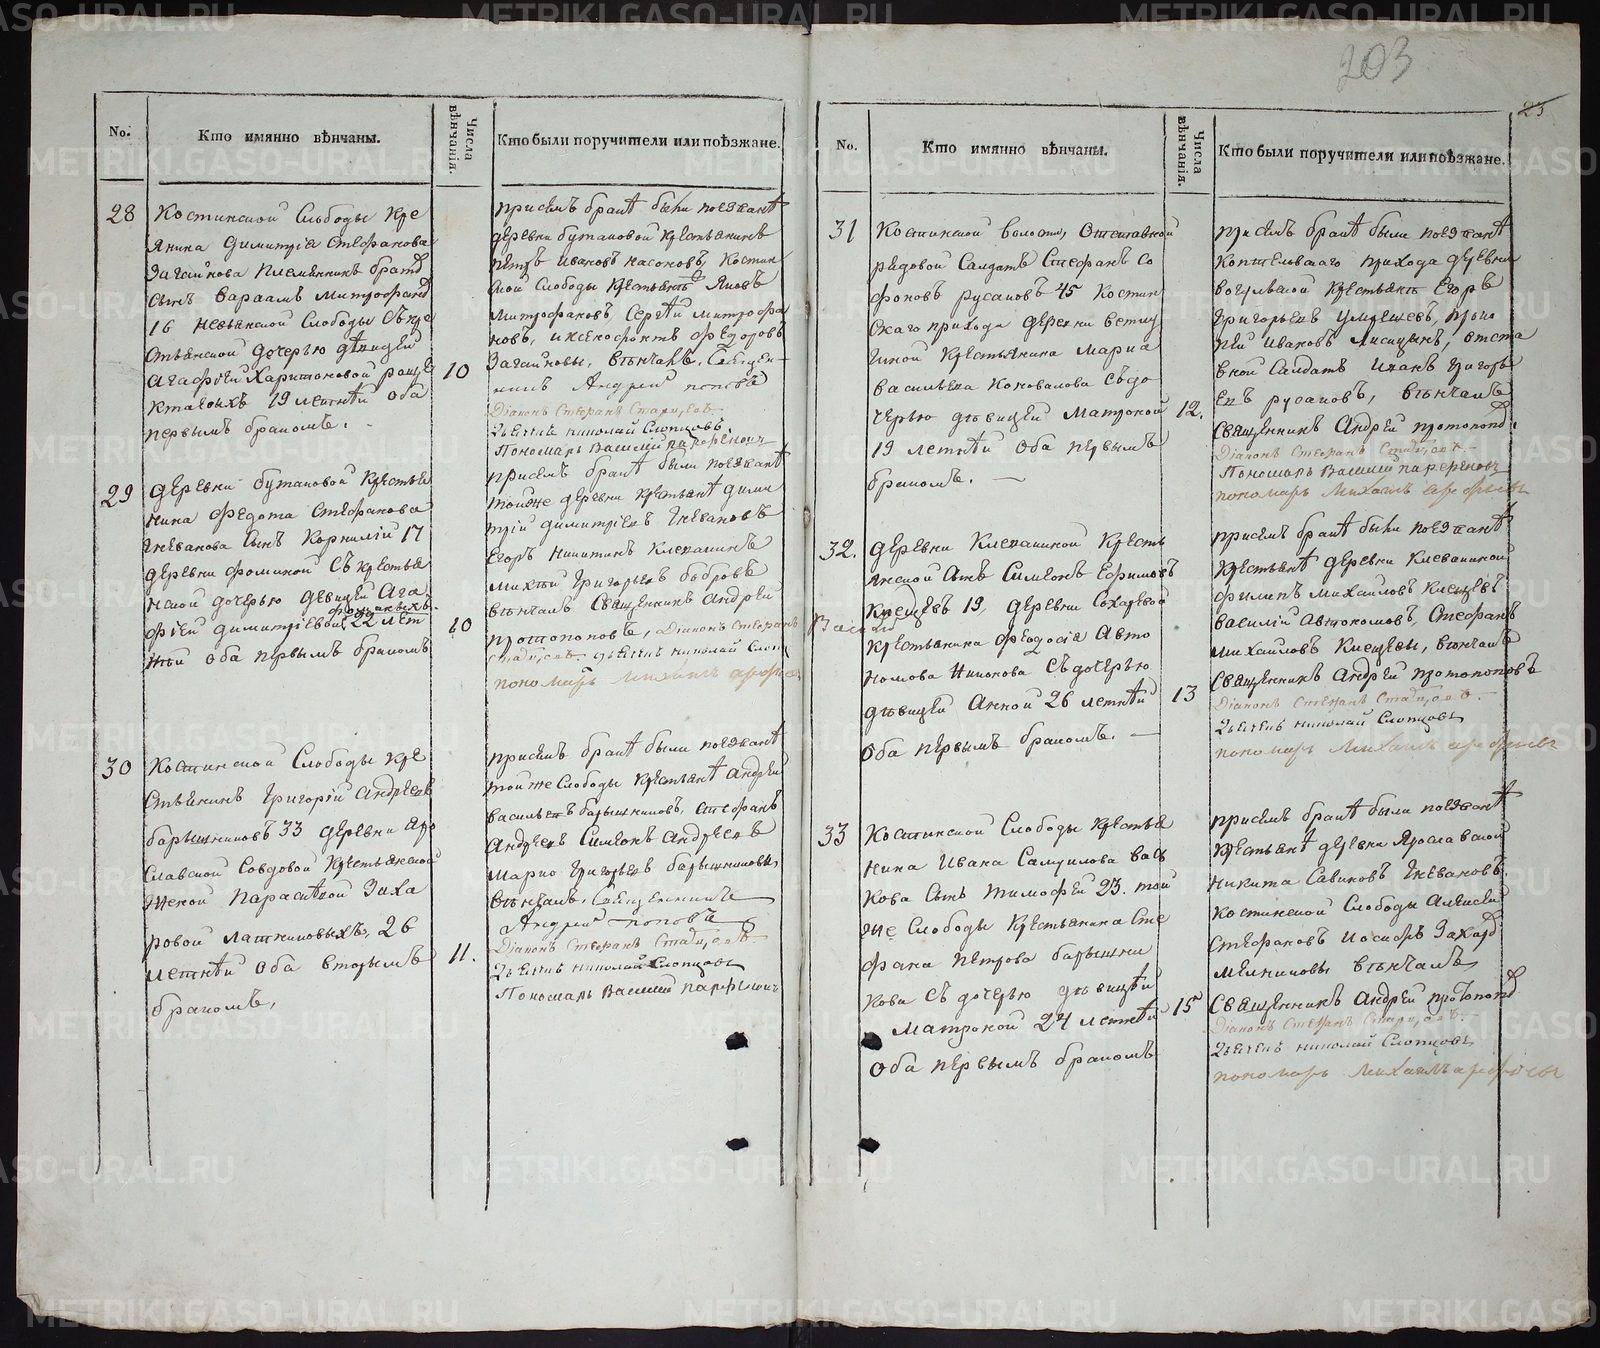 203
25
No.
Кто имянно вѣнчаны.
Числа вѣнчанія.
Кто были поручители или поѣзжане.
28
Костинской Слободы Кре
янина Димитріа Стефанова
Загайнова Племянникъ
сынъ Варлаамъ Митрофанов
16 Невьянской Слободы Съ кре
стьянской дочерью дѣвицей
Агафіей Харитоновой
19 лѣтнѣй оба
первымъ бракомъ.
10
при семъ бракѣ были поезжанѣ
деревни бутаковой крестьянинъ
Петръ Ивановъ Насоновъ, Костин
ской Слободы Крестьянѣ Яковъ
Митрофановъ, Сергѣй Митрофа
новъ, и Ксенофонтъ Федоровъ
Загайновы, вѣнчалъ. Священ-
никъ Андрей Поповъ
Діаконъ Стефанъ
Дьячекъ Николай Слопцовъ.
Пономарь Василий Парфеновъ
29
Деревни бутаковой Крестья
нина Федота Стефанова
Гневанова Сынъ Корнилій 17
деревни Фоминой Съ крестья
нской дочерью девицей Ага
фіей Димитріевой Фоминыхъ 22 лет
нѣй оба первымъ бракомъ
10
при семъ бракѣ были поезжанѣ
тойже деревни крестьянѣ Дими
трій Димитріевъ Гневановъ
Егоръ Никитинъ Клевакинъ
Михей Григорьевъ бобровъ
вѣнчалъ Священникъ Андрей
Протопоповъ, Діаконъ Стефанъ
дьячекъ Николай Слопц
пономарь Михаилъ
30
Костинской Слободы Кре
стьянинъ Григорій Андреевъ
барышниковъ 33 деревни Яро
славской Совдовой Крестьянской
женой Параскѣвой Заха
ровой Латниковыхъ, 26
летнѣй оба вторымъ
бракомъ,
11.
при семъ бракѣ были поезжанѣ
той же Слободы Крестьянѣ Андрей
Васильевъ барышниковъ, Стефанъ
Андреевъ Симеонъ Андреевъ
Марко Григорьевъ барышниковы,
вѣнчалъ. Священникъ
Андрей Поповъ
Діаконъ Стефанъ
Дьячекъ Николай Слопцовъ
Пономарь Василий Парфеновъ
No.
Кто имянно вѣнчаны.
Числа вѣнчанія.
Кто были поручители или поѣзжане.
31
Костинской волости, Отставной
рядовой Салдатъ Стефанъ Со
фоновъ Русаковъ 45 Костин
скаго прихода деревни Ветлу
гиной Крестьянина Марка
Васильева Коновалова Съ до
черью дѣвицей Матроной
19 летнѣй оба первымъ
бракомъ.
12.
при семъ бракѣ были поезжанѣ
Коптеловскаго прихода деревни
Крестьянѣ Егоръ
Григорьевъ Прокo
пей Ивановъ Лисицынъ, отста
вной Салдатъ Иванъ Григорь
евъ Русаковъ, вѣнчалъ
Священникъ Андрей Протопоп.
Діаконъ Стефанъ
Пономарь Василий Парфеновъ
пономарь Михаилъ
32.
Деревни Клевакиной Кресть
янской Сынъ Симеонъ Ефимовъ
Клещевъ 19, деревни Сохаревой
Крестьянина Феодосіа Авто
номова Никонова Съ дочерью
дѣвицей Анной 26 летнѣй
оба первымъ бракомъ.
13
при семъ бракѣ были поезжанѣ
Крестьянѣ деревни Клевакиной
Филипъ Михайловъ Клещевъ
Василій Автономовъ, Стефанъ
Михайловъ Клещевы, вѣнчалъ
Священникъ Андрей Протопоповъ
Діаконъ Стефанъ
Дьячекъ Николай Слопцовъ
пономарь Михаилъ
33
Костинской Слободы Крестья
нина Ивана Самуилова
кова Сынъ Тимофей 23. той
же Слободы Крестьянина Сте
фана Петрова барышни
кова Съ дочерью дѣвицѣй
Матроной 24 летнѣй
оба первымъ бракомъ
15
при семъ бракѣ были поезжанѣ
Крестьянѣ деревни Ярославской
Никита Савиновъ Гневановъ
Костинской Слободы Алексѣй
Стефановъ Иосифъ Захар
Мелниковы вѣнчалъ
Священникъ Андрей Протопоп
Діаконъ Стефанъ
Дьячекъ Николай Слопцовъ
пономарь Михаилъ
METRIKI.GASO-URAL.RU